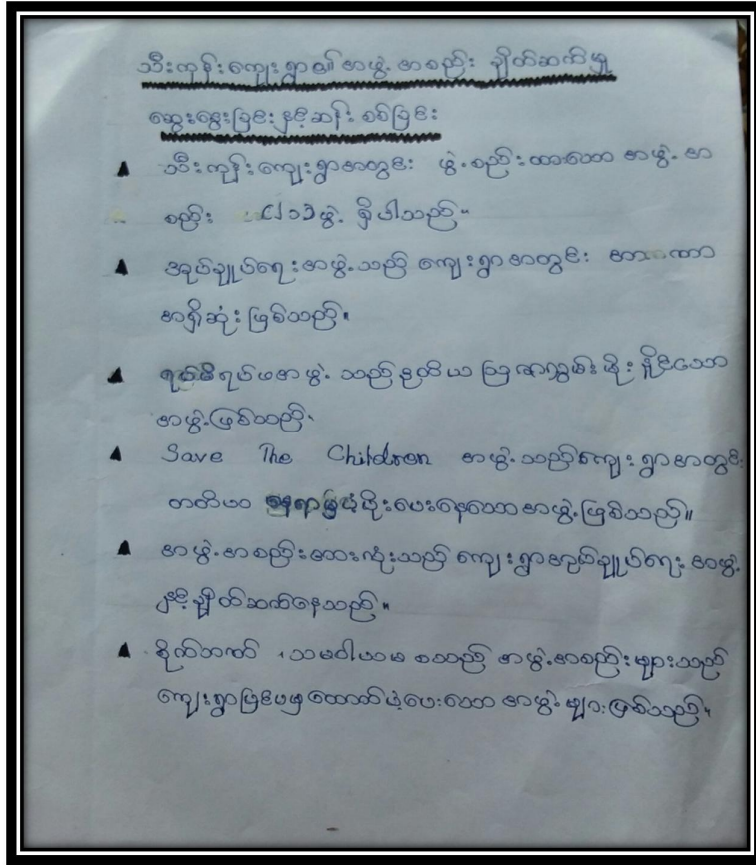 သီးကုန်းကျေးရွာ၏အဖွဲ့အစည်း ချိတ်ဆက်မှု
ဆွေးနွေးခြင်းနှင့်ဆန်းစစ်ခြင်း
▲ သီးကုန်းကျေးရွာအတွင်း ဖွဲ့စည်းထားသော အဖွဲ့အ
စည်း (၁၁)ဖွဲ့ ရှိပါသည်။
▲ အုပ်ချုပ်ရေးအဖွဲ့သည် ကျေးရွာအတွင်း အာဏာ
အရှိဆုံးဖြစ်သည်။
▲ ရပ်မိရပ်ဖအဖွဲ့သည်ဒုတိယ ဩဇာလွှမ်းမိုးရှိသော
အဖွဲ့ဖြစ်သည်။
▲ Save The Children အဖွဲ့သည်ကျေးရွာအတွင်း
တတိယ ပံ့ပိုးပေးနေသောအဖွဲ့ဖြစ်သည်။
▲ အဖွဲ့အစည်းအားလုံးသည် ကျေးရွာအုပ်ချုပ်ရေးအဖွဲ့
နှင့်ချိတ်ဆက်နေသည်။
▲ စိုက်ဘဏ်၊ သမဝါယမ စသည့် အဖွဲ့အစည်းများသည်
ကျေးရွာပြင်ပမှထောက်ပံ့ပေးသော အဖွဲ့များဖြစ်သည်။